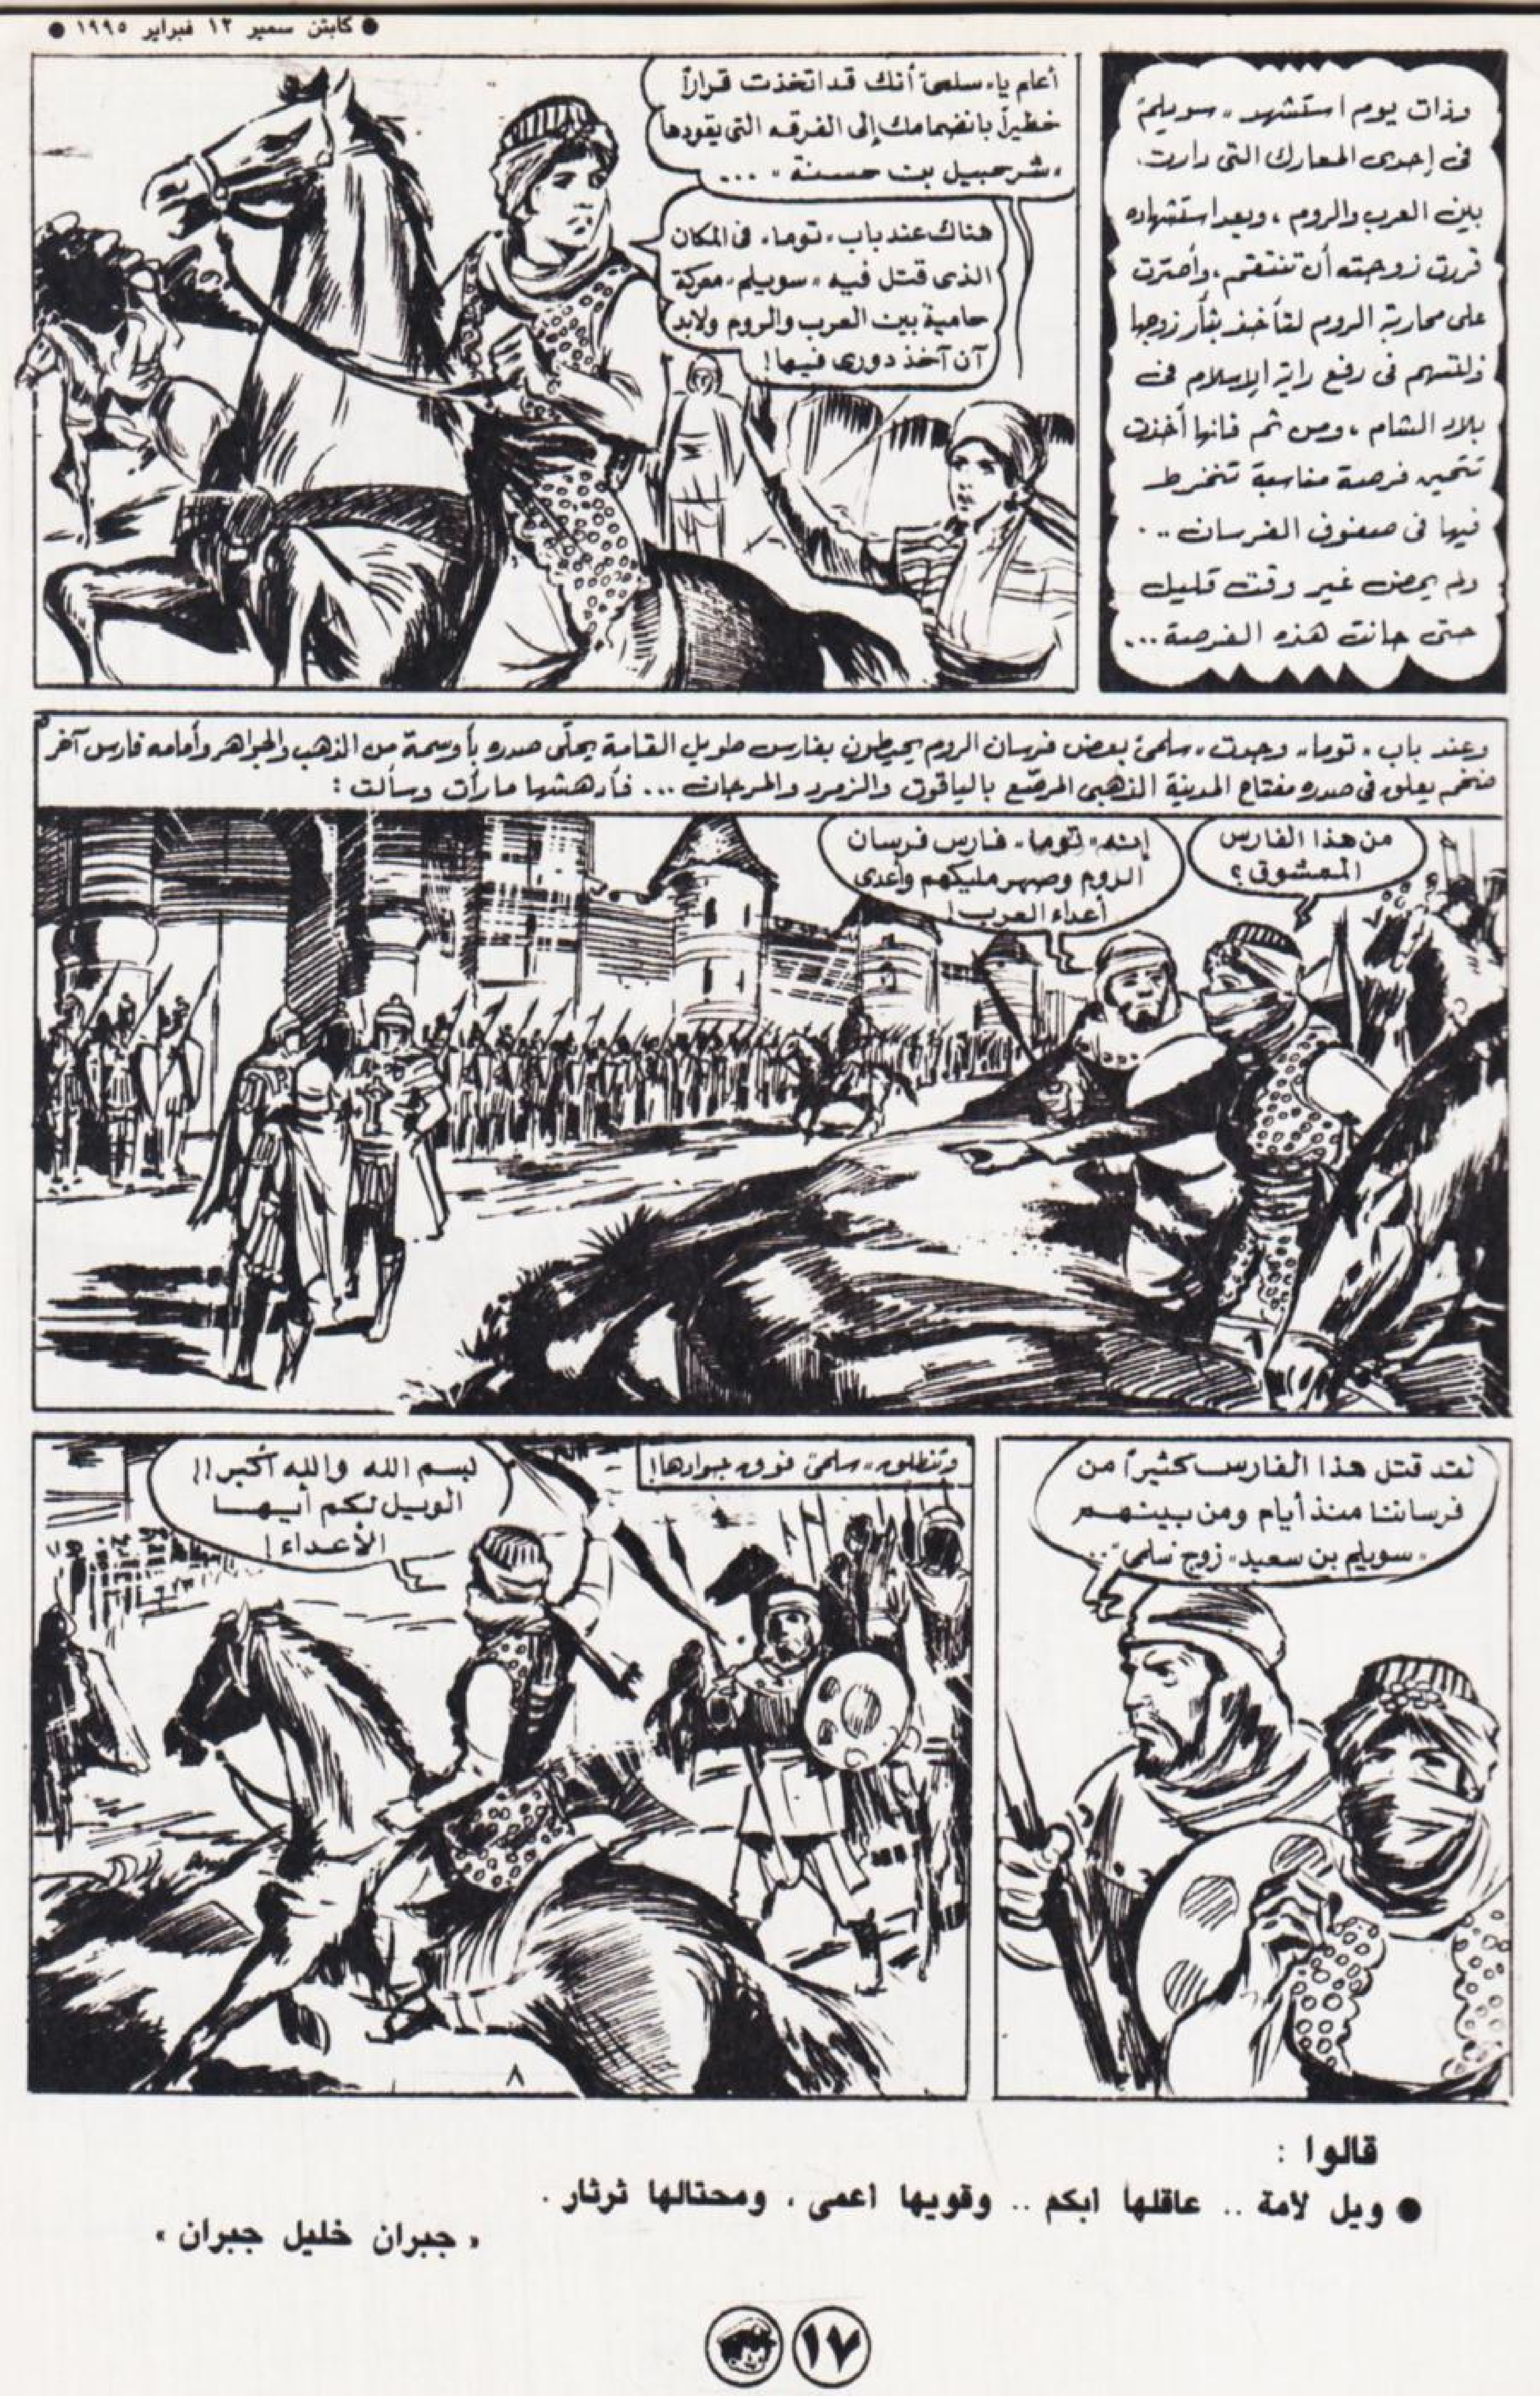 ● كابتن سمير ١٢ فبراير ١٩٩٥ ●
وذات يوم استشهد «سويلم»
فى إحدى المعارك التى دارت
بين العرب والروم ، وبعد استشهاده
قررت زوجته أن تنتقم ، وأصرت
على محاربة الروم لتأخذ بثأر زوجها
ولتسهم فى رفع راية الإسلام فى
بلاد الشام ، ومن ثم فانها أخذت
تتحين فرصة مناسبة تنخرط
فيها فى صفوف الفرسان ..
ولم يمض غير وقت قليل
حتى حانت هذه الفرصة ...
أعلم يا «سلمى» أنك قد اتخذت قراراً
خطيراً بانضمامك إلى الفرقه التى يقودها
«شرحبيل بن حسنة» ...
هناك عند باب «توما» فى المكان
الذى قتل فيه «سويلم» معركة
حامية بين العرب والروم ولابد
آن آخذ دورى فيها !
وعند باب «توما» وجدت «سلمى» بعض فرسان الروم يحيطون بفارس طويل القامة يحلّى صدره بأوسمة من الذهب والجواهر وأمامه فارس آخر
ضخم يعلق فى صدره مفتاح المدينة الذهبى المرصّع بالياقوت والزمرد والمرجان ... فأدهشها مارأت وسألت :
من هذا الفارس
الممشوق ؟
إنه «توما» فارس فرسان
الروم وصهر مليكهم وأعدى
أعداء العرب !
لقد قتل هذا الفارس كثيراً من
فرساننا منذ أيام ومن بينهم
«سويلم بن سعيد» زوج سلمى ..
وتنطلق «سلمى» فوق جوادها !
بسم الله والله أكبر !!
الويل لكم أيها
الأعداء !
٨
قالوا :
● ويل لامة .. عاقلها ابكم .. وقويها اعمى ، ومحتالها ثرثار .
« جبران خليل جبران »
١٧